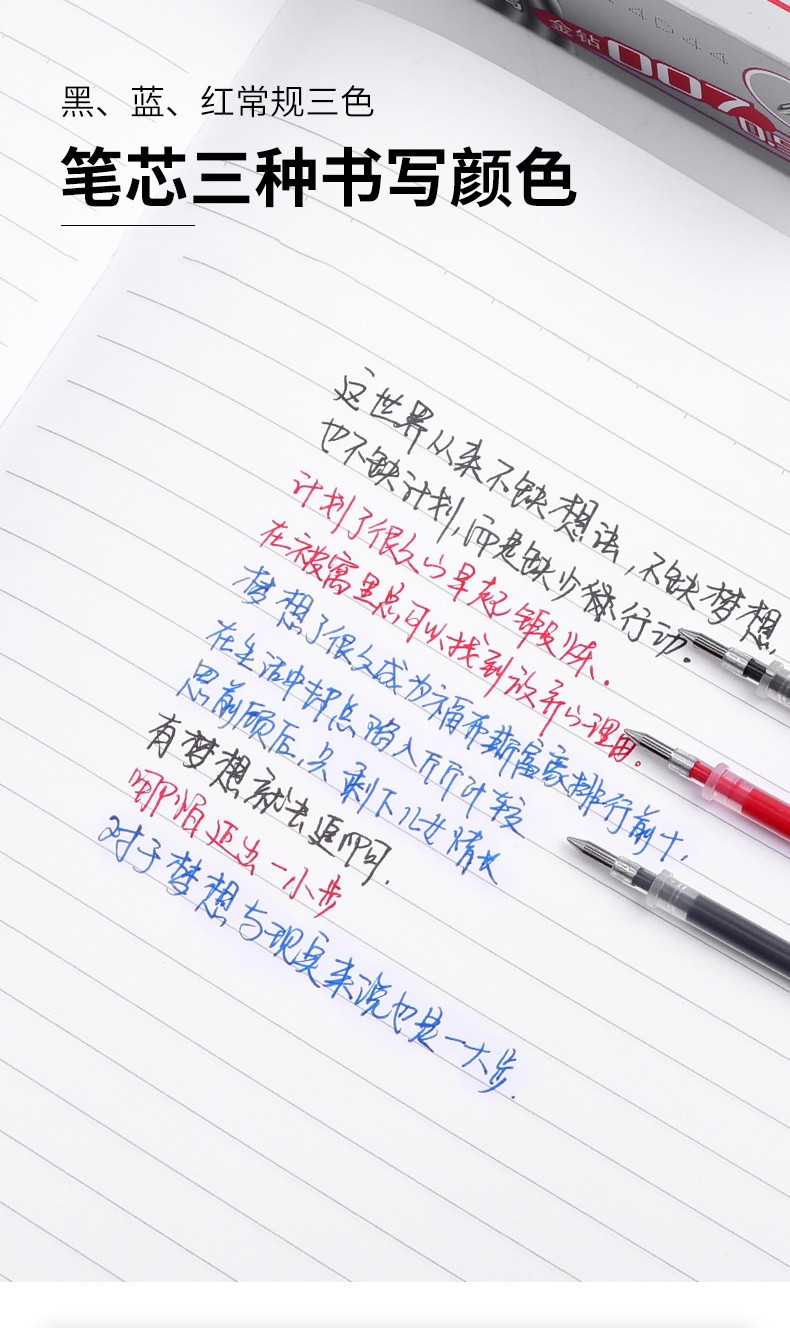 金钻
007
黑、蓝、红常规三色
笔芯三种书写颜色
这世界从来不缺想法,不缺梦想,
也不缺计划,而是缺少缘行动.
计划了很久の早起锻炼.
在被窝里总可以找到放弃の理由.
梦想了很久成为福布斯富豪排行前十,
在生活中却总陷入斤斤计较
思前顾后,只剩下儿女情长
有梦想就去追啊.
哪怕迈出一小步
对于梦想与现实来说也是一大步.